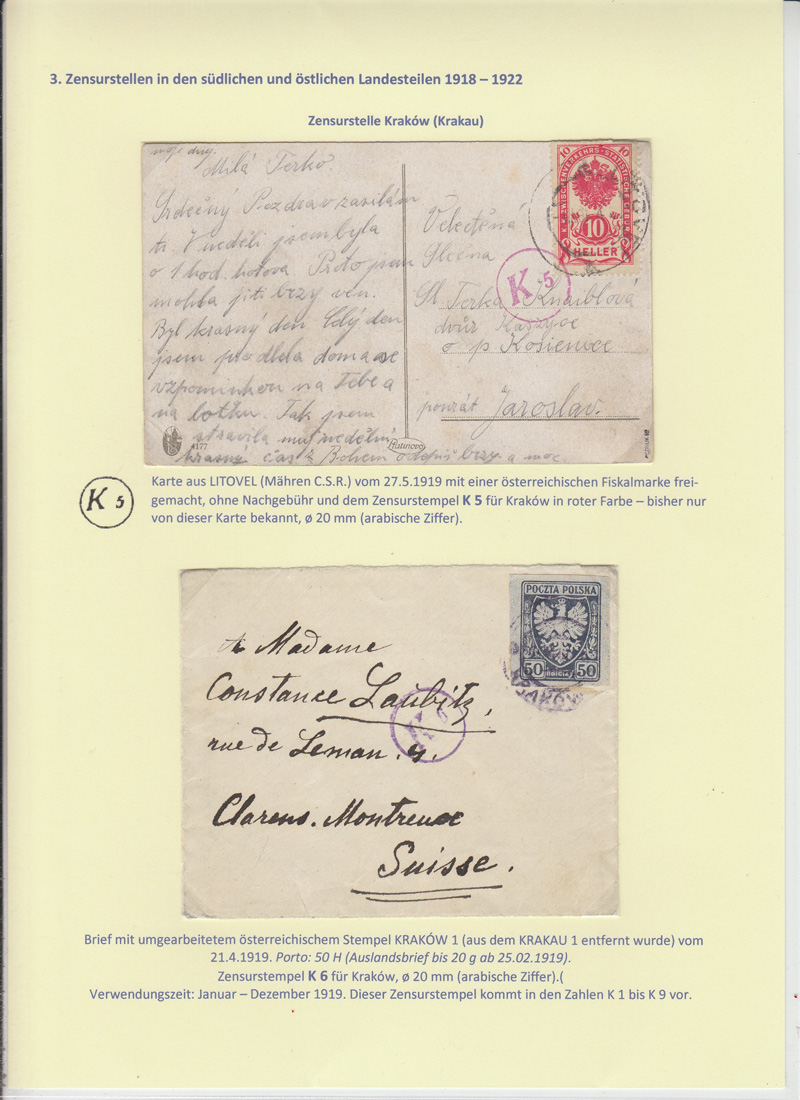 3. Zensurstellen in den südlichen und östlichen Landesteilen 1918 – 1922
Zensurstelle Kraków (Krakau)
Milá Terko.
Srdečný Pozdrav zasílám
ti. V neděli jsem byla
o 1 hod. hotova Proto jsem
mohla jíti brzy ven.
Byl krásný den Celý den
jsem prodlela doma se
vzpomínkou na Tebe a
na Tak jsem
strávila
krásný čas S Bohem odepiš brzy a moc.
4177
K.K. ZWISCHENVERKEHRS-STATISTISCHE GEBÜHR
10 10
10
HELLER
K 5
Velectěná
Slečna
Sl. Terka Knaiblová
dvůr Kaszyce
o p Kosienice
powiát Jaroslav.
K 5
Karte aus LITOVEL (Mähren C.S.R.) vom 27.5.1919 mit einer österreichischen Fiskalmarke frei-
gemacht, ohne Nachgebühr und dem Zensurstempel K 5 für Kraków in roter Farbe – bisher nur
von dieser Karte bekannt, ø 20 mm (arabische Ziffer).
POCZTA POLSKA
50 50
KRAKÓW
Madame
Constance Laubitz,
rue de Leman. 4.
Clarens. Montreux
Suisse.
K 6
Brief mit umgearbeitetem österreichischem Stempel KRAKÓW 1 (aus dem KRAKAU 1 entfernt wurde) vom
21.4.1919. Porto: 50 H (Auslandsbrief bis 20 g ab 25.02.1919).
Zensurstempel K 6 für Kraków, ø 20 mm (arabische Ziffer).(
Verwendungszeit: Januar – Dezember 1919. Dieser Zensurstempel kommt in den Zahlen K 1 bis K 9 vor.